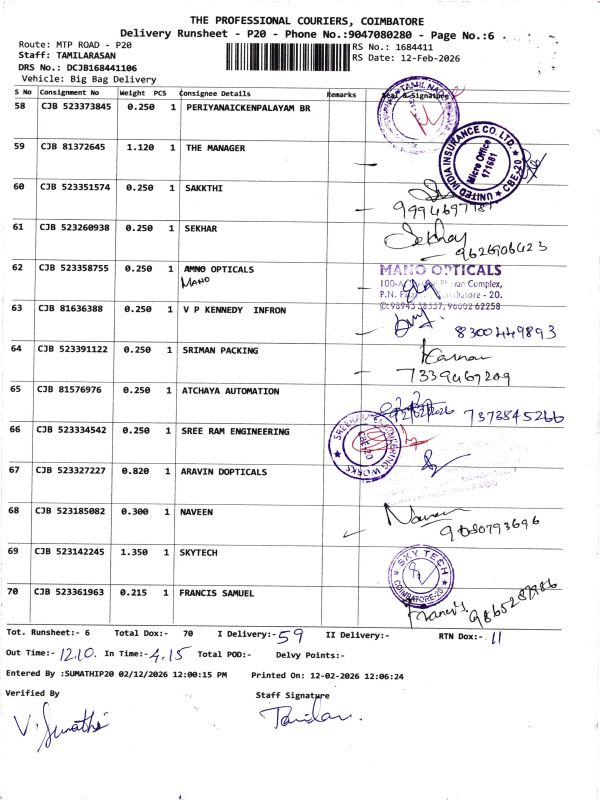 THE PROFESSIONAL COURIERS, COIMBATORE
Delivery Runsheet - P20 - Phone No.:9047080280 - Page No.:6
Route: MTP ROAD - P20
RS No.: 1684411
Staff: TAMILARASAN
RS Date: 12-Feb-2026
DRS No.: DCJB168441106
Vehicle: Big Bag Delivery
S No Consignment No Weight PCS Consignee Details Remarks Seal & Signature
58 CJB 523373845 0.250 1 PERIYANAICKENPALAYAM BR
59 CJB 81372645 1.120 1 THE MANAGER
UNITED INDIA INSURANCE CO. LTD. CBE-20
Micro Office
171681
60 CJB 523351574 0.250 1 SAKKTHI
61 CJB 523260938 0.250 1 SEKHAR
Sekhay
9626906423
62 CJB 523358755 0.250 1 AMNO OPTICALS
MANO
MANO OPTICALS
Complex,
63 CJB 81636388 0.250 1 V P KENNEDY INFRON
8300449893
64 CJB 523391122 0.250 1 SRIMAN PACKING
Kannan
7339467209
65 CJB 81576976 0.250 1 ATCHAYA AUTOMATION
7373845266
66 CJB 523334542 0.250 1 SREE RAM ENGINEERING
67 CJB 523327227 0.820 1 ARAVIN DOPTICALS
68 CJB 523185082 0.300 1 NAVEEN
Naveen
69 CJB 523142245 1.350 1 SKYTECH
SKY TECH
COIMBATORE-20
70 CJB 523361963 0.215 1 FRANCIS SAMUEL
Tot. Runsheet:- 6 Total Dox:- 70 I Delivery:- 59 II Delivery:- RTN Dox:- 11
Out Time:- 12.10. In Time:- 4.15 Total POD:- Delvy Points:-
Entered By :SUMATHIP20 02/12/2026 12:00:15 PM Printed On: 12-02-2026 12:06:24
Verified By Staff Signature
V. Sumathi